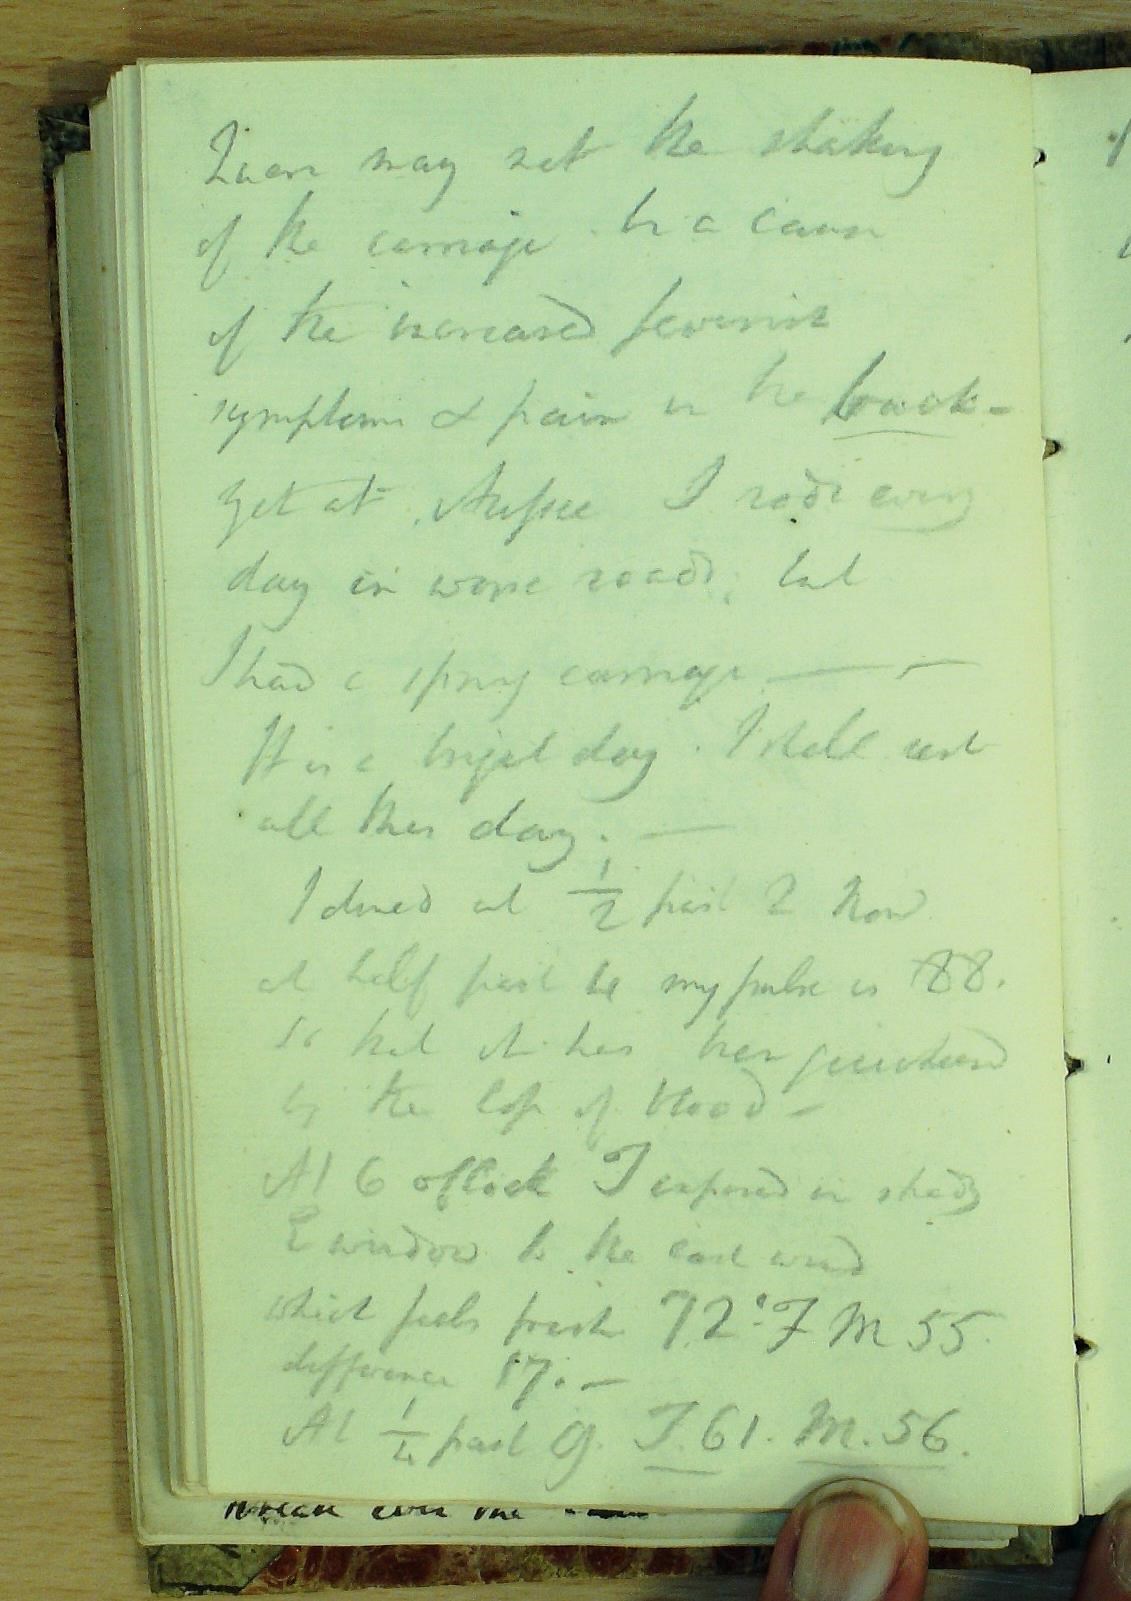 Quere may not the shaking
of the carriage be a cause
of the increased feverish
symptoms & pain in the back -
yet at Aussee I rode every
day in worse roads, but
I had a spring carriage ——
It is a bright day. I shall rest
all this day. —
I dined at 1/2 past 2 Now
at half past my pulse is 88.
So that it has been quickened
by the loss of blood -
At 6 o'clock T exposed in shady
E window to the east wind
which feels fresh 72° F M 55.
difference 17. —
At 1/4 past 9. T. 61. M. 56.